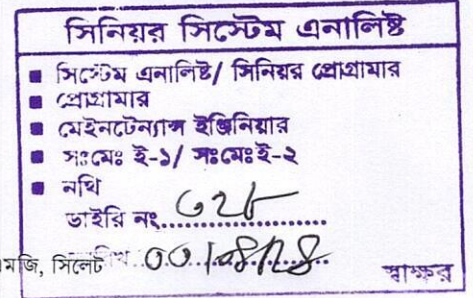 সিনিয়র সিস্টেম এনালিষ্ট
■ সিস্টেম এনালিষ্ট/ সিনিয়র প্রোগ্রামার
■ প্রোগ্রামার
■ মেইনটেন্যান্স ইঞ্জিনিয়ার
■ সঃমেঃ ই-১/ সঃমেঃই-২
■ নথি
ডাইরি নং
মজি, সিলেট
স্বাক্ষর